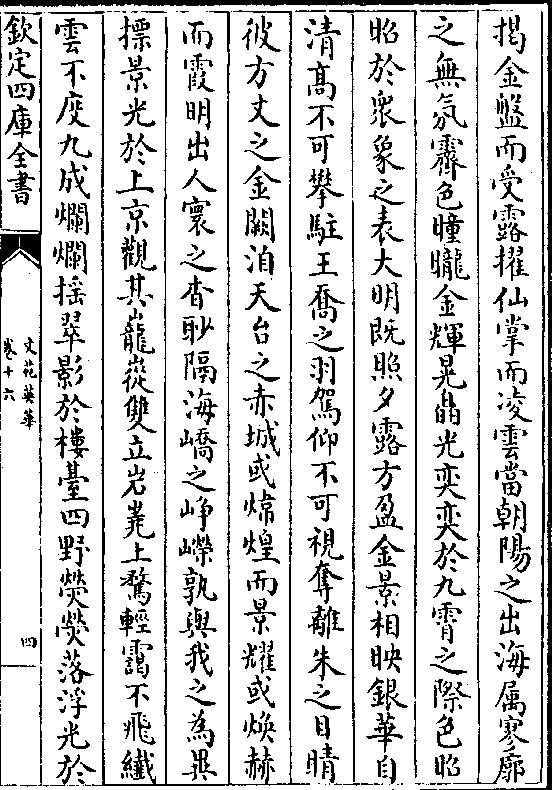 揭金盤而受露擢仙掌而凌雲當朝陽之出海属寥廓
之無氛霽色曈曨金輝晃晶光奕奕於九霄之際色昭
昭於衆象之表大明既照夕露方盈金景相映銀華自
清髙不可攀駐王喬之羽駕仰不可視奪離朱之目睛
彼方丈之金闕洎天台之赤城或煒煌而景耀或焕赫
而霞明出人寰之杳眇隔海嶠之崢嶸孰與我之為異
摽景光於上京觀其巃嵸雙立岩嶤上騖輕靄不飛纖
雲不度九成爛爛揺翠影於樓臺四野熒熒落浮光於
欽定四庫全書
文苑英華
卷十六
四